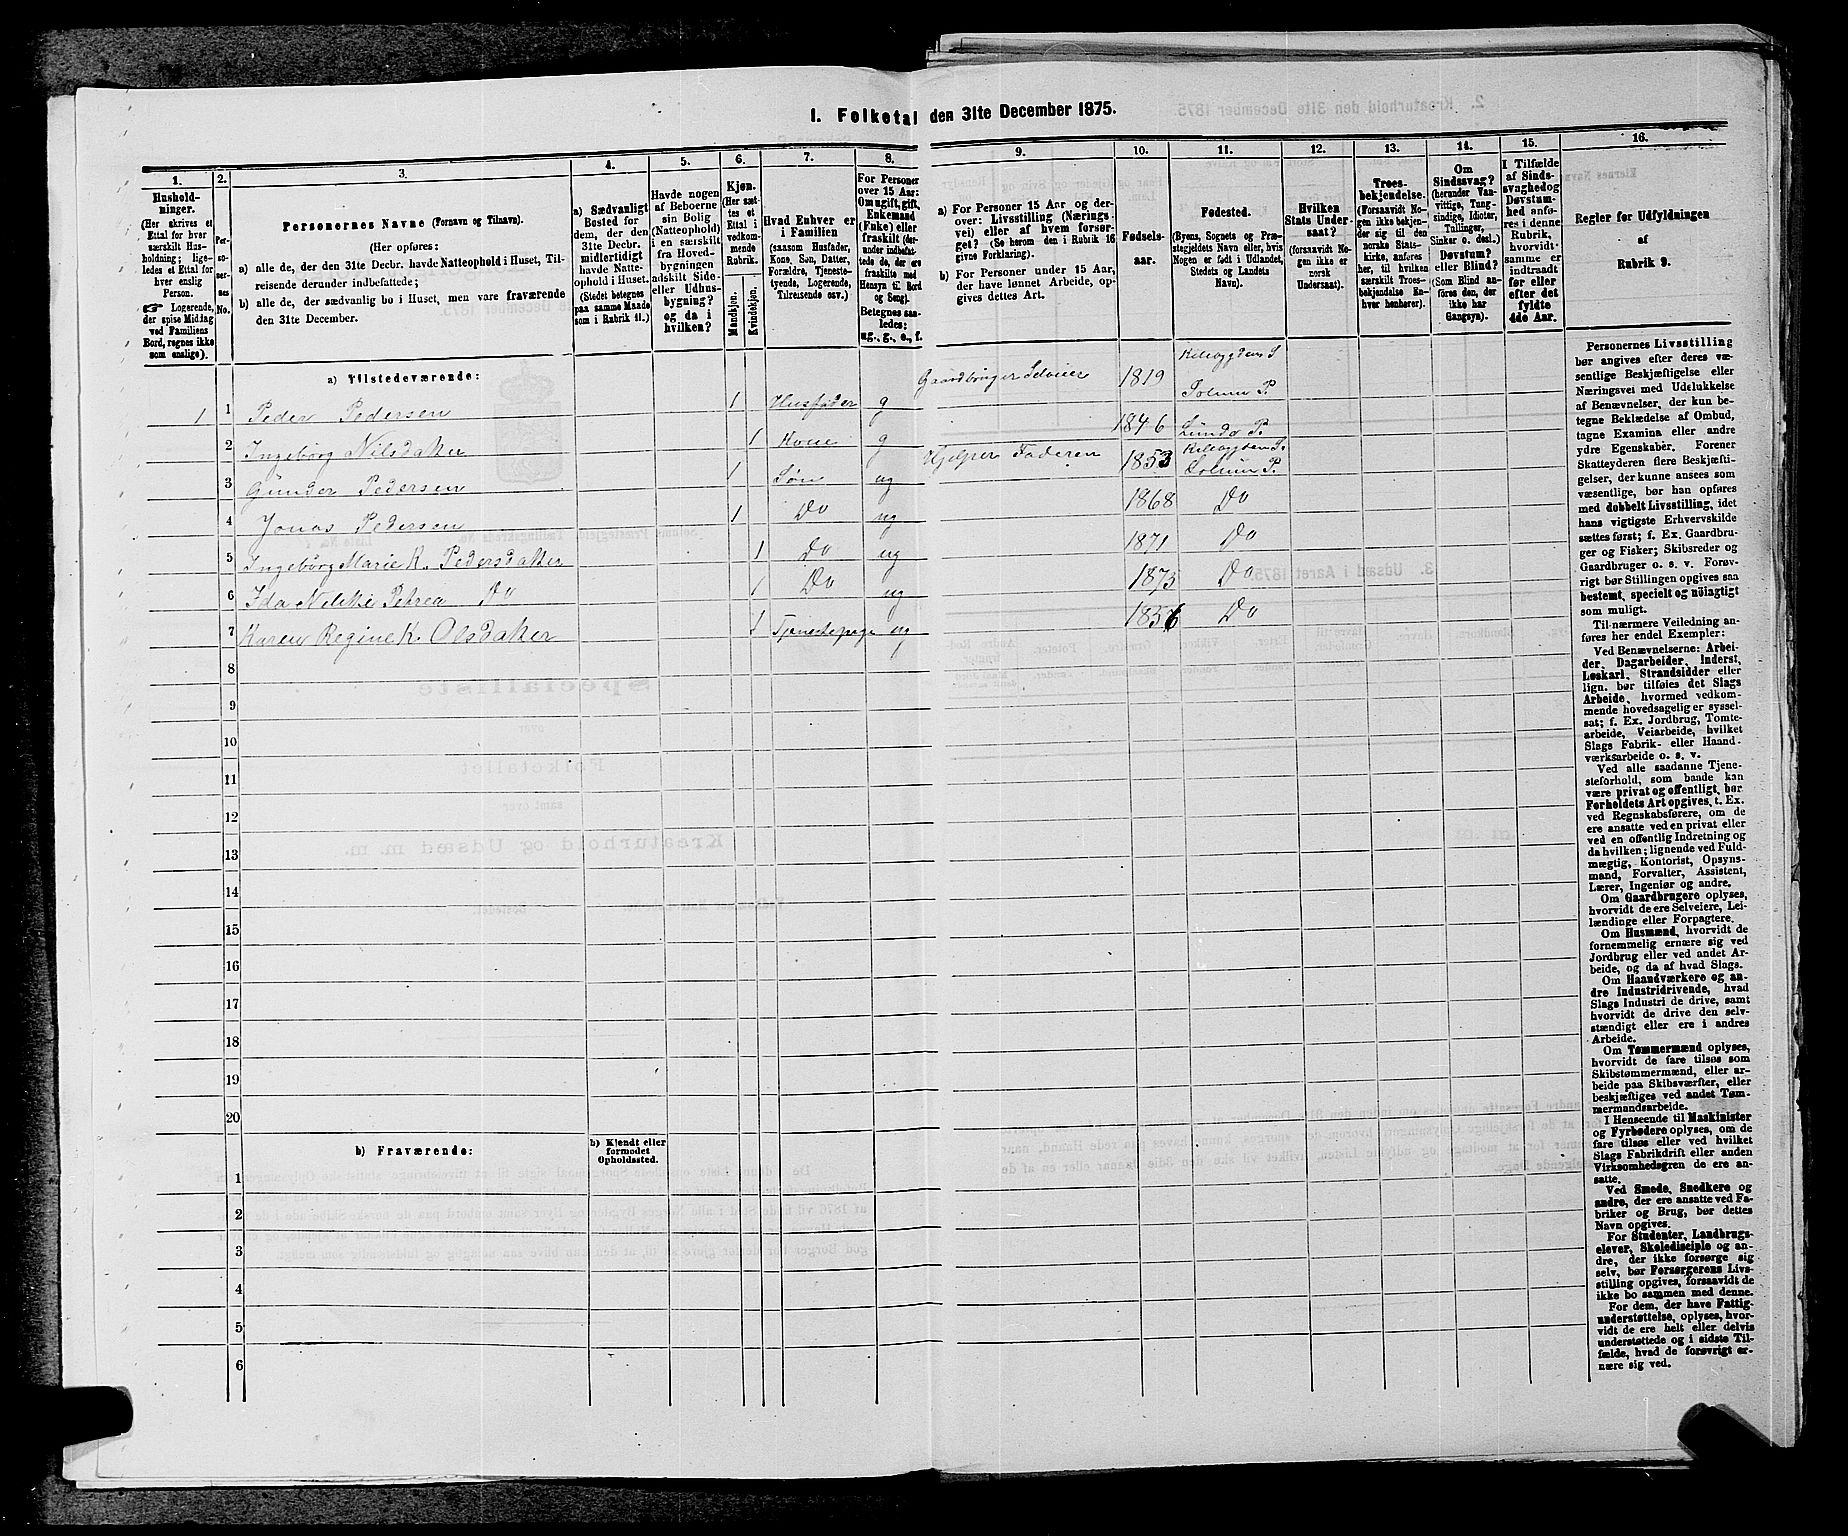 I. Folketal den 31te December 1875.
1.
Hushold-
ninger.
(Her skrives et
Ettal for hver
særskilt Hus-
holdning; lige-
ledes et Ettal for
hver enslig
Person.
Logerende,
der spise Middag
ved Familiens
Bord, regnes ikke
som enslige).
2.
Per-
so-
ner-
nes
No.
3.
Personernes Navne (Fornavn og Tilnavn).
(Her opføres:
a) alle de, der den 31te Decbr. havde Natteophold i Huset, Til-
reisende derunder indbefattede;
b) alle de, der sædvanlig bo i Huset, men vare fraværende
den 31te December.
4.
a) Sædvanligt
Bosted for
dem, der den
31te Decbr.
midlertidigt
havde Natte-
ophold i Huset.
(Stedet betegnes
paa samme Maade
som i Rubrik 11.)
5.
Havde nogen
af Beboerne
sin Bolig
(Natteophold)
i en særskilt
fra Hoved-
bygningen
adskilt Side-
eller Udhus-
bygning?
og da i
hvilken?
6.
Kjøn.
(Her sæt-
tes et
Ettal i
vedkom-
mende
Rubrik.
Mandkjøn.
Kvindekjøn.
7.
Hvad Enhver er
i Familien
(saasom Husfader,
Kone, Søn, Datter,
Forældre, Tjeneste-
tyende, Logerende,
Tilreisende osv.)
8.
For Personer
over 15 Aar:
Om ugift, gift,
Enkemand
(Enke) eller
fraskilt (der-
under indbefat-
tede de, der ere
fraskilte med
Hensyn til Bord
og Seng).
Betegnes saa-
ledes:
ug., g., e., f.
9.
a) For Personer 15 Aar og der-
over: Livsstilling (Nærings-
vei) eller af hvem forsør-
get? (Se herom den i Rubrik 16
givne Forklaring).
b) For Personer under 15 Aar,
der have lønnet Arbeide, op-
gives dettes Art.
10.
Fødsels-
aar.
11.
Fødested.
(Byens, Sognets og Præ-
stegjeldets Navn eller, hvis
Nogen er født i Udlandet,
Stedets og Landets
Navn).
12.
Hvilken
Stats Under-
saat?
(forsaavidt No-
gen ikke er
norsk
Undersaat).
13.
Troes-
bekjendelse.
(Forsaavidt No-
gen ikke bekjen-
der sig til den
norske Stats-
kirke, anføres
her, til hvilken
særskilt Troes-
bekjendelse En-
hver henhører).
14.
Om
Sindssvag?
(herunder Van-
vittige, Tung-
sindige, Idioter,
Tullinger,
Sinker o. desl.).
Døvstum?
eller Blind?
(Som Blind an-
føres den, der
ikke har
Gangsyn).
15.
I Tilfælde
af Sinds-
svaghed og
Døvstum-
hed anfø-
res i denne
Rubrik,
hvorvidt
samme er
indtraadt
før eller
efter det
fyldte
4de Aar.
16.
Regler for Udfyldningen
af
Rubrik 9.
a) Tilstedeværende:
1 1 Peder Pedersen 1 Husfader g Gaardbruger Selveier 1819 Solum P.
2 Ingebørg Nilsdatter 1 Kone g 1846 P.
3 Gunder Pedersen 1 Søn ug Hjelper Faderen 1853 Solum P.
4 Jonas Pedersen 1 Do ug 1868 Do
5 Ingebørg Marie K. Pedersdatter 1 Do ug 1871 Do
6 Ida Petrea Do 1 Do ug 1875 Do
7 Karen Regine K. Olsdatter 1 Tjenestepige ug 1856 Do
8
9
10
11
12
13
14
15
16
17
18
19
20
b) Fraværende:
b) Kjendt eller
formodet
Opholdssted.
1
2
3
4
5
6
Personernes Livsstilling
bør angives efter deres væ-
sentlige Beskjæftigelse eller
Næringsvei med Udelukkelse
af Benævnelser, der kun be-
tegne Beklædelse af Ombud,
tagne Examina eller andre
ydre Egenskaber. Forener
Skatteyderen flere Beskjæfti-
gelser, der kunne ansees som
væsentlige, bør han opføres
med dobbelt Livsstilling, idet
hans vigtigste Erhvervskilde
sættes først; f. Ex. Gaardbru-
ger og Fisker; Skibsreder og
Gaardbruger o. s. v. Forøv-
rigt bør Stillingen opgives saa
bestemt, specielt og nøiagtigt
som muligt.
Til nærmere Veiledning an-
føres her endel Exempler:
Ved Benævnelserne: Arbei-
der, Dagarbeider, Inderst,
Løskarl, Strandsidder eller
lign. bør tilføies det Slags
Arbeide, hvormed vedkom-
mende hovedsagelig er syssel-
sat; f. Ex. Jordbrug, Tomte-
arbeide, Veiarbeide, hvilket
Slags Fabrik- eller Haand-
værksarbeide o. s. v.
Ved alle saadanne Tjene-
steforhold, som baade kan
være privat og offentligt, bør
Forholdets Art opgives, t. Ex.
ved Regnskabsførere, om de
ere ansatte ved en privat eller
ved en offentlig Indretning og
da hvilken; lignende ved Fuld-
mægtig, Kontorist, Opsyns-
mand, Forvalter, Assistent,
Lærer, Ingeniør og andre.
Om Gaardbrugere oplyses,
hvorvidt de ere Selveiere, Lei-
lændinge eller Forpagtere.
Om Husmænd, hvorvidt de
fornemmelig ernære sig ved
Jordbrug eller ved andet Ar-
beide, og da af hvad Slags.
Om Haandværkere og an-
dre Industridrivende, hvad
Slags Industri de drive, samt
hvorvidt de drive den selv-
stændigt eller ere i andres
Arbeide.
Om Tømmermænd oplyses,
hvorvidt de fare tilsøs som
Skibstømmermænd, eller ar-
beide paa Skibsværfter, eller
beskjæftiges ved andet Tøm-
mermandsarbeide.
I Henseende til Maskinister
og Fyrbødere oplyses, om de
fare tilsøs eller ved hvilket
Slags Fabrikdrift eller anden
Virksomhedsgren de ere an-
satte.
Ved Smede, Snedkere og
andre, der ere ansatte ved Fa-
briker og Brug, bør dettes
Navn opgives.
For Studenter, Landbrugs-
elever, Skoledisciple og an-
dre, der ikke forsørge sig
selv, bør Forsørgerens Livs-
stilling opgives, forsaavidt de
ikke bo sammen med denne.
For dem, der have Fattig-
understøttelse, oplyses, hvor-
vidt de ere helt eller delvis
understøttede og i sidste Til-
fælde, hvad de forøvrigt er-
nære sig ved.